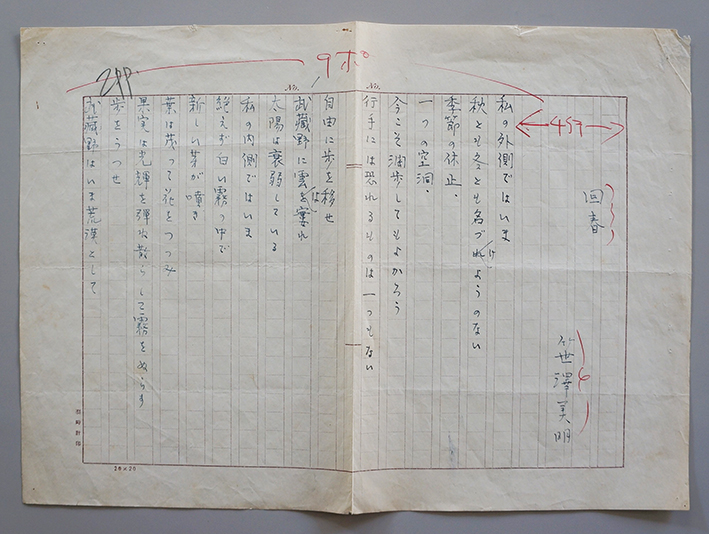 9ポ
299
459
回春
笹澤美明
私の外側ではいま
秋とも冬とも名づけようのない
季節の休止、
一つの空洞、
今こそ濶歩してもよかろう
行手には恐れるものは一つもない
自由に歩を移せ
武蔵野に雲は窶れ
太陽は衰弱している
私の内側ではいま
絶えず白い霧の中で
新しい芽が噴き
葉は茂って花をつつみ
果実は光輝を弾ね散らして霧をぬらす
歩をうつせ
武蔵野はいま荒漠として
No.
No.
20×20